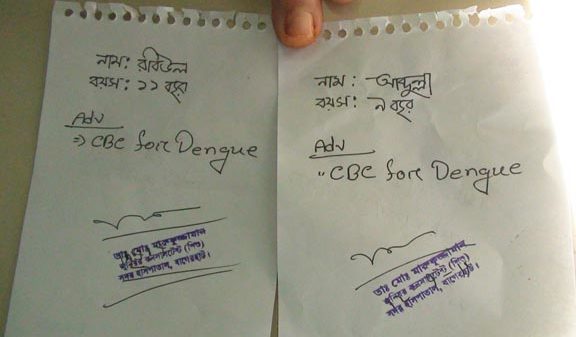 নাম: রবিউল
বয়স: ১১ বছর
Adv
⇒ CBC for Dengue
ডাঃ মোঃ
জুনিয়র কনসালটেন্ট (শিশু)
সদর হাসপাতাল, বাগেরহাট।
নাম: আব্দুল্লা
বয়স: ৯ বছর
Adv
" CBC for Dengue
ডাঃ মোঃ
জুনিয়র কনসালটেন্ট (শিশু)
সদর হাসপাতাল, বাগেরহাট।